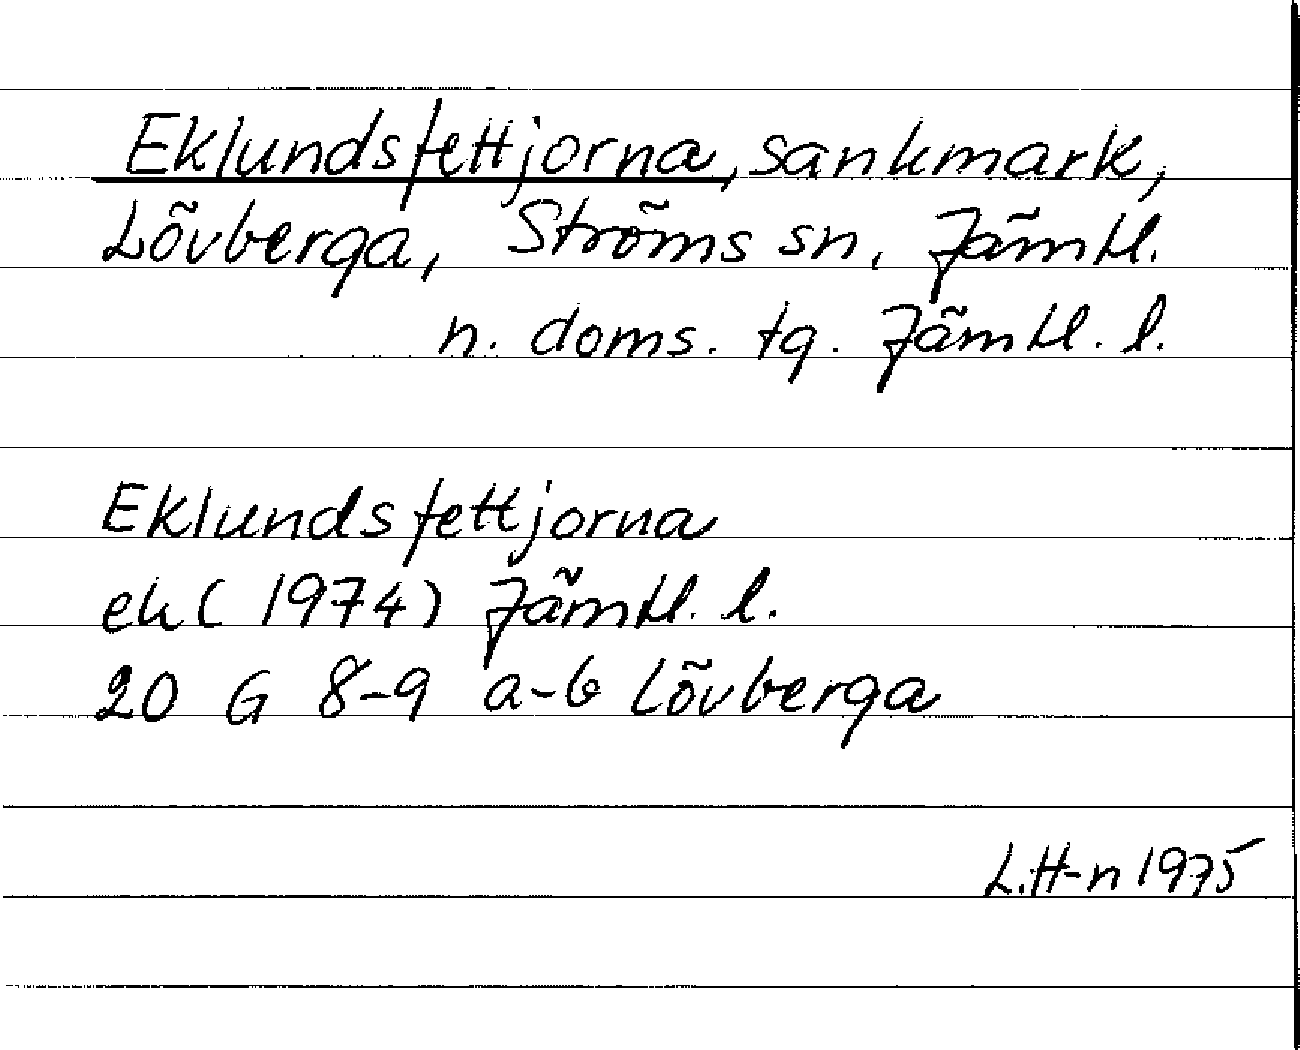 Eklundsfettjorna, sankmark,
Lövberga, Ströms sn, Jämtl.
n. doms. tg. Jämtl. l.
Eklundsfettjorna
ek (1974) Jämtl. l.
20 G 8-9 a-b Lövberga
L.H-n 1975